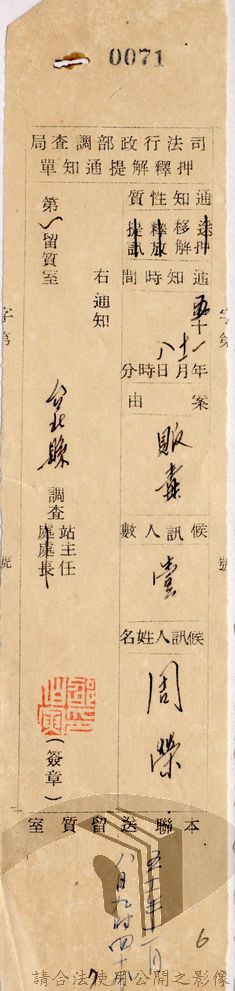 0071
司法行政部調查局
押釋解提通知單
通知性質
提訊 釋放 移解 送押
通知時間
五十一年十一月八日 時 分
案由
販毒
候訊人數
壹
候訊人姓名
周榮
右通知
第一留質室
台北縣調查站主任
處處長
(簽章)
本聯送留質室
五十一年十一月
八日九時四十分
6
字第
號
請合法使用公開之影像